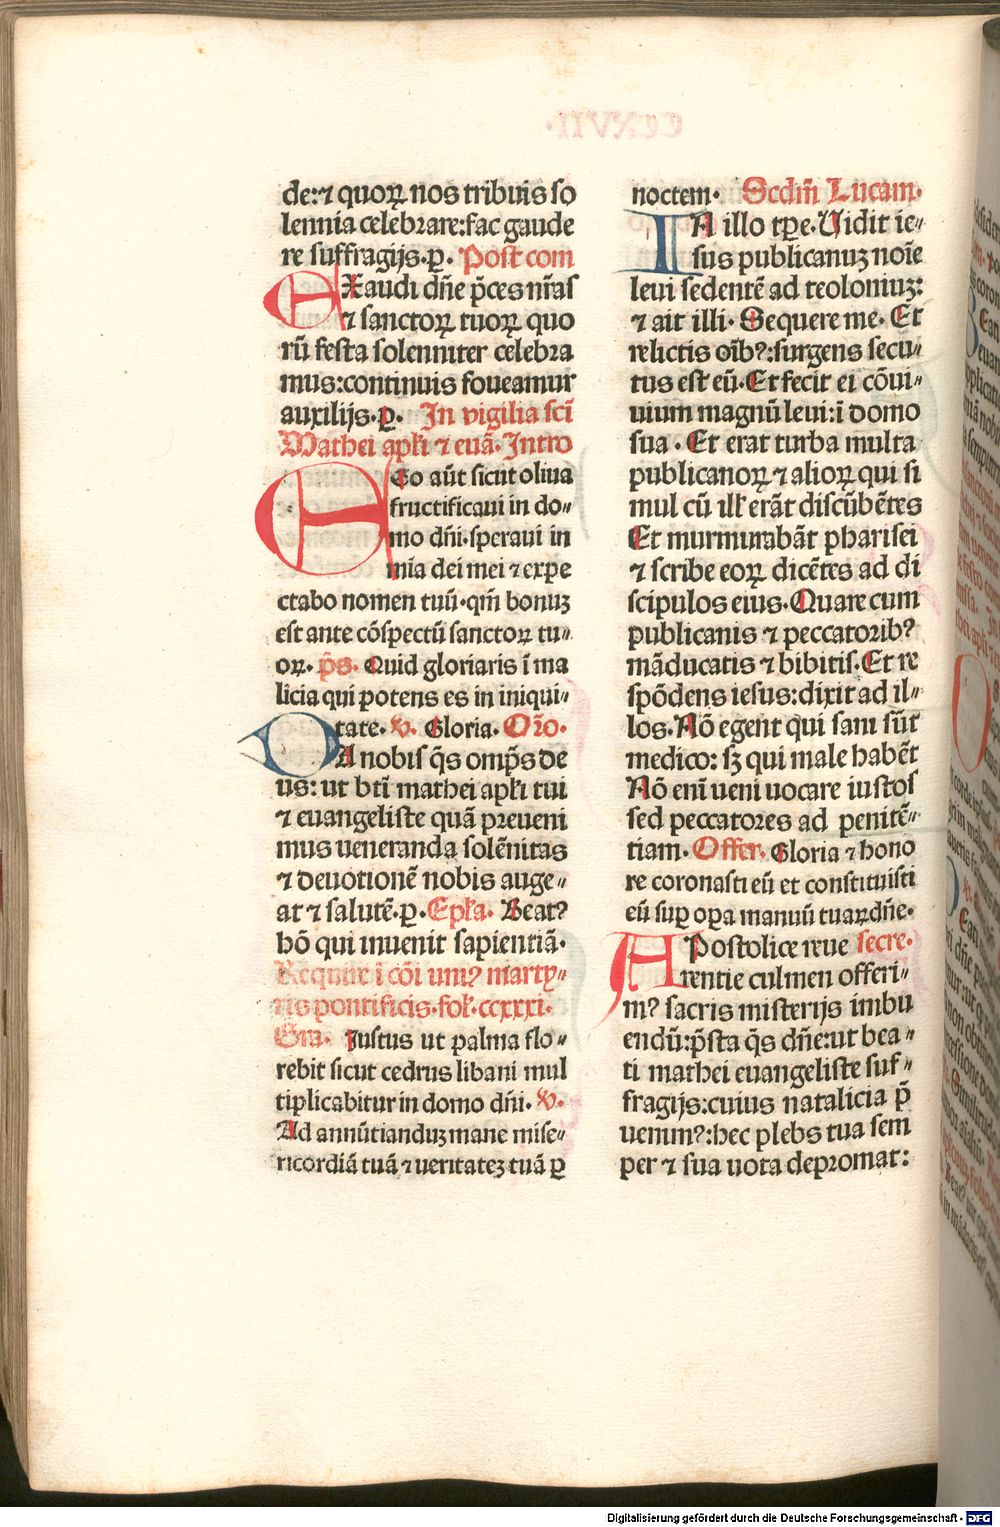 de:⁊ quoꝝ nos tribuis so
lennia celebrare:fac gaude
re suffragijs.ꝑ. Post com
EXaudi dñe p̄ces nr̄as
⁊ sanctoꝝ tuoꝝ quo
rū festa solenniter celebra
mus:continuis foueamur
auxilijs.ꝑ. In vigilia sci̅
Mathei apl̓i ⁊ euā. Intro
EGo aūt sicut oliua
fructificaui in do⸗
mo dn̄i.speraui in
mīa dei mei ⁊ expe
ctabo nomen tuū.qm̄ bonuꝫ
est ante cōspectū sanctoꝝ tu⸗
oꝝ. p̄s. Quid gloriaris ī ma
licia qui potens es in iniqui⸗
tate. v. Gloria. Oro̅.
DA nobis q̄s omp̄s de
us: ut bt̄i mathei apl̓i tui
⁊ euangeliste quā preueni
mus ueneranda solēnitas
⁊ deuotionē nobis auge⸗
at ⁊ salutē.ꝑ. Epl̓a. Beatꝰ
hō qui inuenit sapientiā.
Require ī cōi uniꝰ marty⸗
ris pontificis.fol̓.ccxxxi.
Gra. Justus ut palma flo⸗
rebit sicut cedrus libani mul
tiplicabitur in domo dn̄i. v.
Ad annūtianduꝫ mane mise⸗
ricordiā tuā ⁊ ueritateꝫ tuā ꝑ
noctem. Scdm̄ Lucam.
IN illo tꝑe. Uidit ie⸗
sus publicanuꝫ noīe
leui sedentē ad teoloniuꝫ:
⁊ ait illi. Sequere me. Et
relictis oībꝰ:surgens secu⸗
tus est eū. Et fecit ei cōui⸗
uium magnū leui:ī domo
sua. Et erat turba multa
publicanoꝝ ⁊ alioꝝ qui si
mul cū ill̓ erāt discūbētes
Et murmurabāt pharisei
⁊ scribe eoꝝ dicētes ad di
scipulos eius. Quare cum
publicanis ⁊ peccatoribꝰ
māducatis ⁊ bibitis. Et re
spōdens iesus:dixit ad il⸗
los. Nō egent qui sani sūt
medico: sꝫ qui male habēt
Nō eni̅ ueni uocare iustos
sed peccatores ad penitē⸗
tiam. Offer. Gloria ⁊ hono
re coronasti eū et constituisti
eū suꝑ opa manuū tuaꝝ dñe.
APostolice reue secre.
rentie culmen offeri⸗
mꝰ sacris misterijs imbu
endū:p̄sta q̄s dñe:ut bea⸗
ti mathei euangeliste suf⸗
fragijs:cuius natalicia p̄
uenimꝰ:hec plebs tua sem
per ⁊ sua uota depromat:
Digitalisierung gefördert durch die Deutsche Forschungsgemeinschaft - DFG